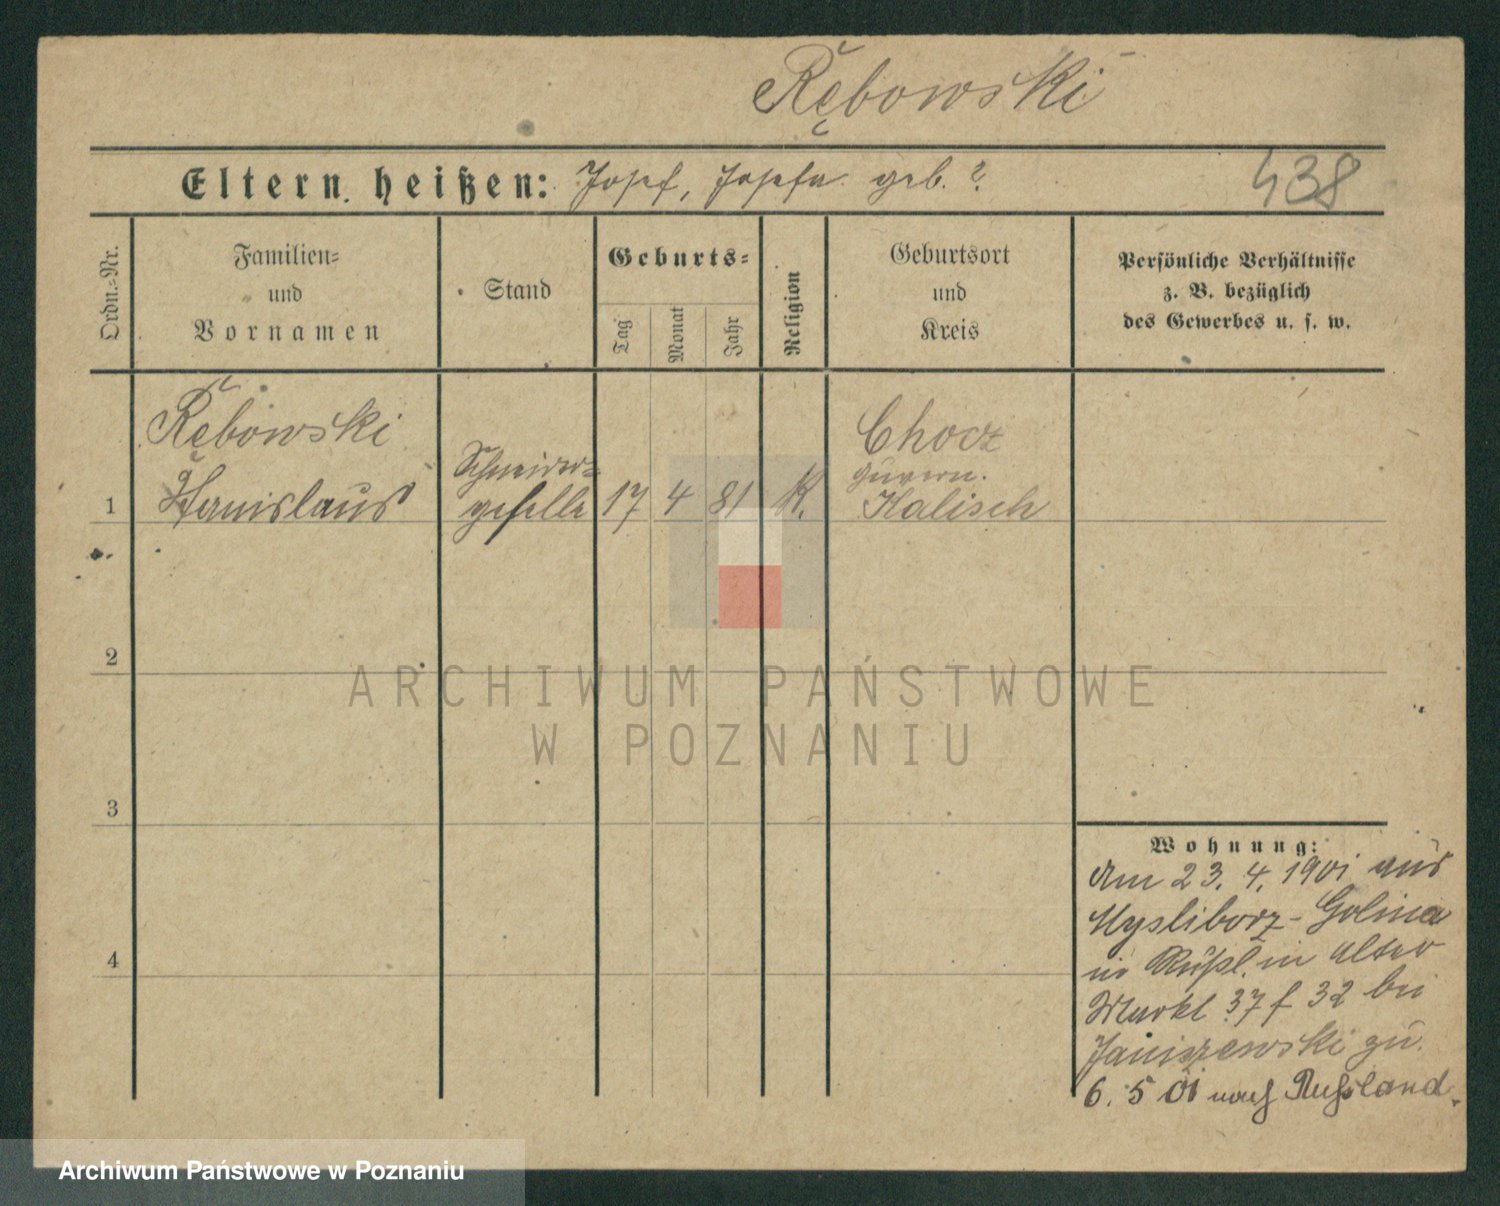 Rębowski
Eltern heißen: Josef, Josefa geb. ?
438
Ordn.-Nr.
Familien-
und
Vornamen
Stand
Geburts-
Tag
Monat
Jahr
Religion
Geburtsort
und
Kreis
Persönliche Verhältnisse
z. B. bezüglich
des Gewerbes u. s. w.
Rębowski
Stanislaus
Schneider-
geselle
1
17 4 81 K.
Chocz
Guvern.
Kalisch
2
3
4
ARCHIWUM PAŃSTWOWE
W POZNANIU
Wohnung:
Am 23. 4. 1901 aus
Mysliborz-Golina
in Rußl. in Alter
Markt 37 f 32 bei
Janiszewski zu.
6. 5 01 nach Russland.
Archiwum Państwowe w Poznaniu